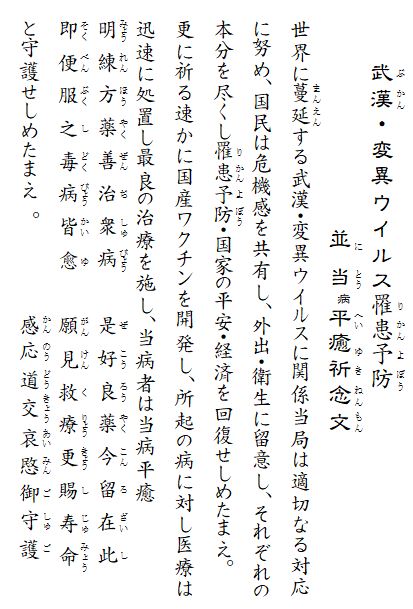 武漢・変異ウイルス罹患予防
並 当病平癒祈念文
世界に蔓延する武漢・変異ウイルスに関係当局は適切なる対応
に努め、国民は危機感を共有し、外出・衛生に留意し、それぞれの
本分を尽くし罹患予防・国家の平安・経済を回復せしめたまえ。
更に祈る速かに国産ワクチンを開発し、所起の病に対し医療は
迅速に処置し最良の治療を施し、当病者は当病平癒
明練方薬善治衆病 是好良薬今留在此
即便服之毒病皆愈 願見救療更賜寿命
と守護せしめたまえ。 感応道交哀愍御守護